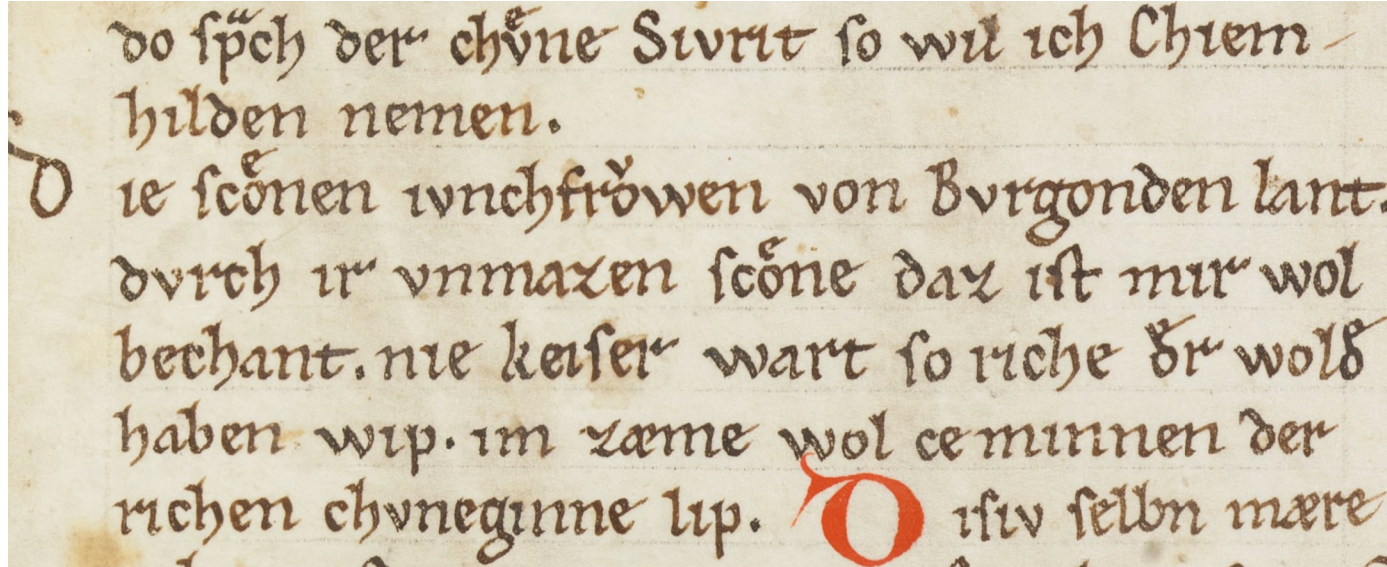 do ſpͣch der chvͤne Sivrit ſo wil ich Chiem-
hilden nemen.
d ie ſcoͤnen ivnchfroͮwen von Bvrgonden lant.
dvrch ir vnmazen ſcoͤne daz iſt mir wol
bechant. nie keiſer wart ſo riche dͤr wold
haben wip. im zæme wol ce minnen der
richen chvneginne lip. D iſiv ſelbn mære